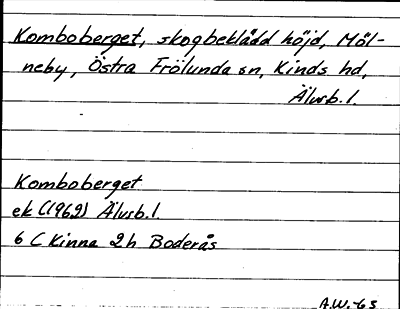 Komboberget, skogbeklädd höjd, Möl-
neby, Östra Frölunda sn, Kinds hd,
Älvsb. l.
Komboberget
ek (1962) Älvsb. l.
6 C Kinna 2h Boderås
A.W.-65